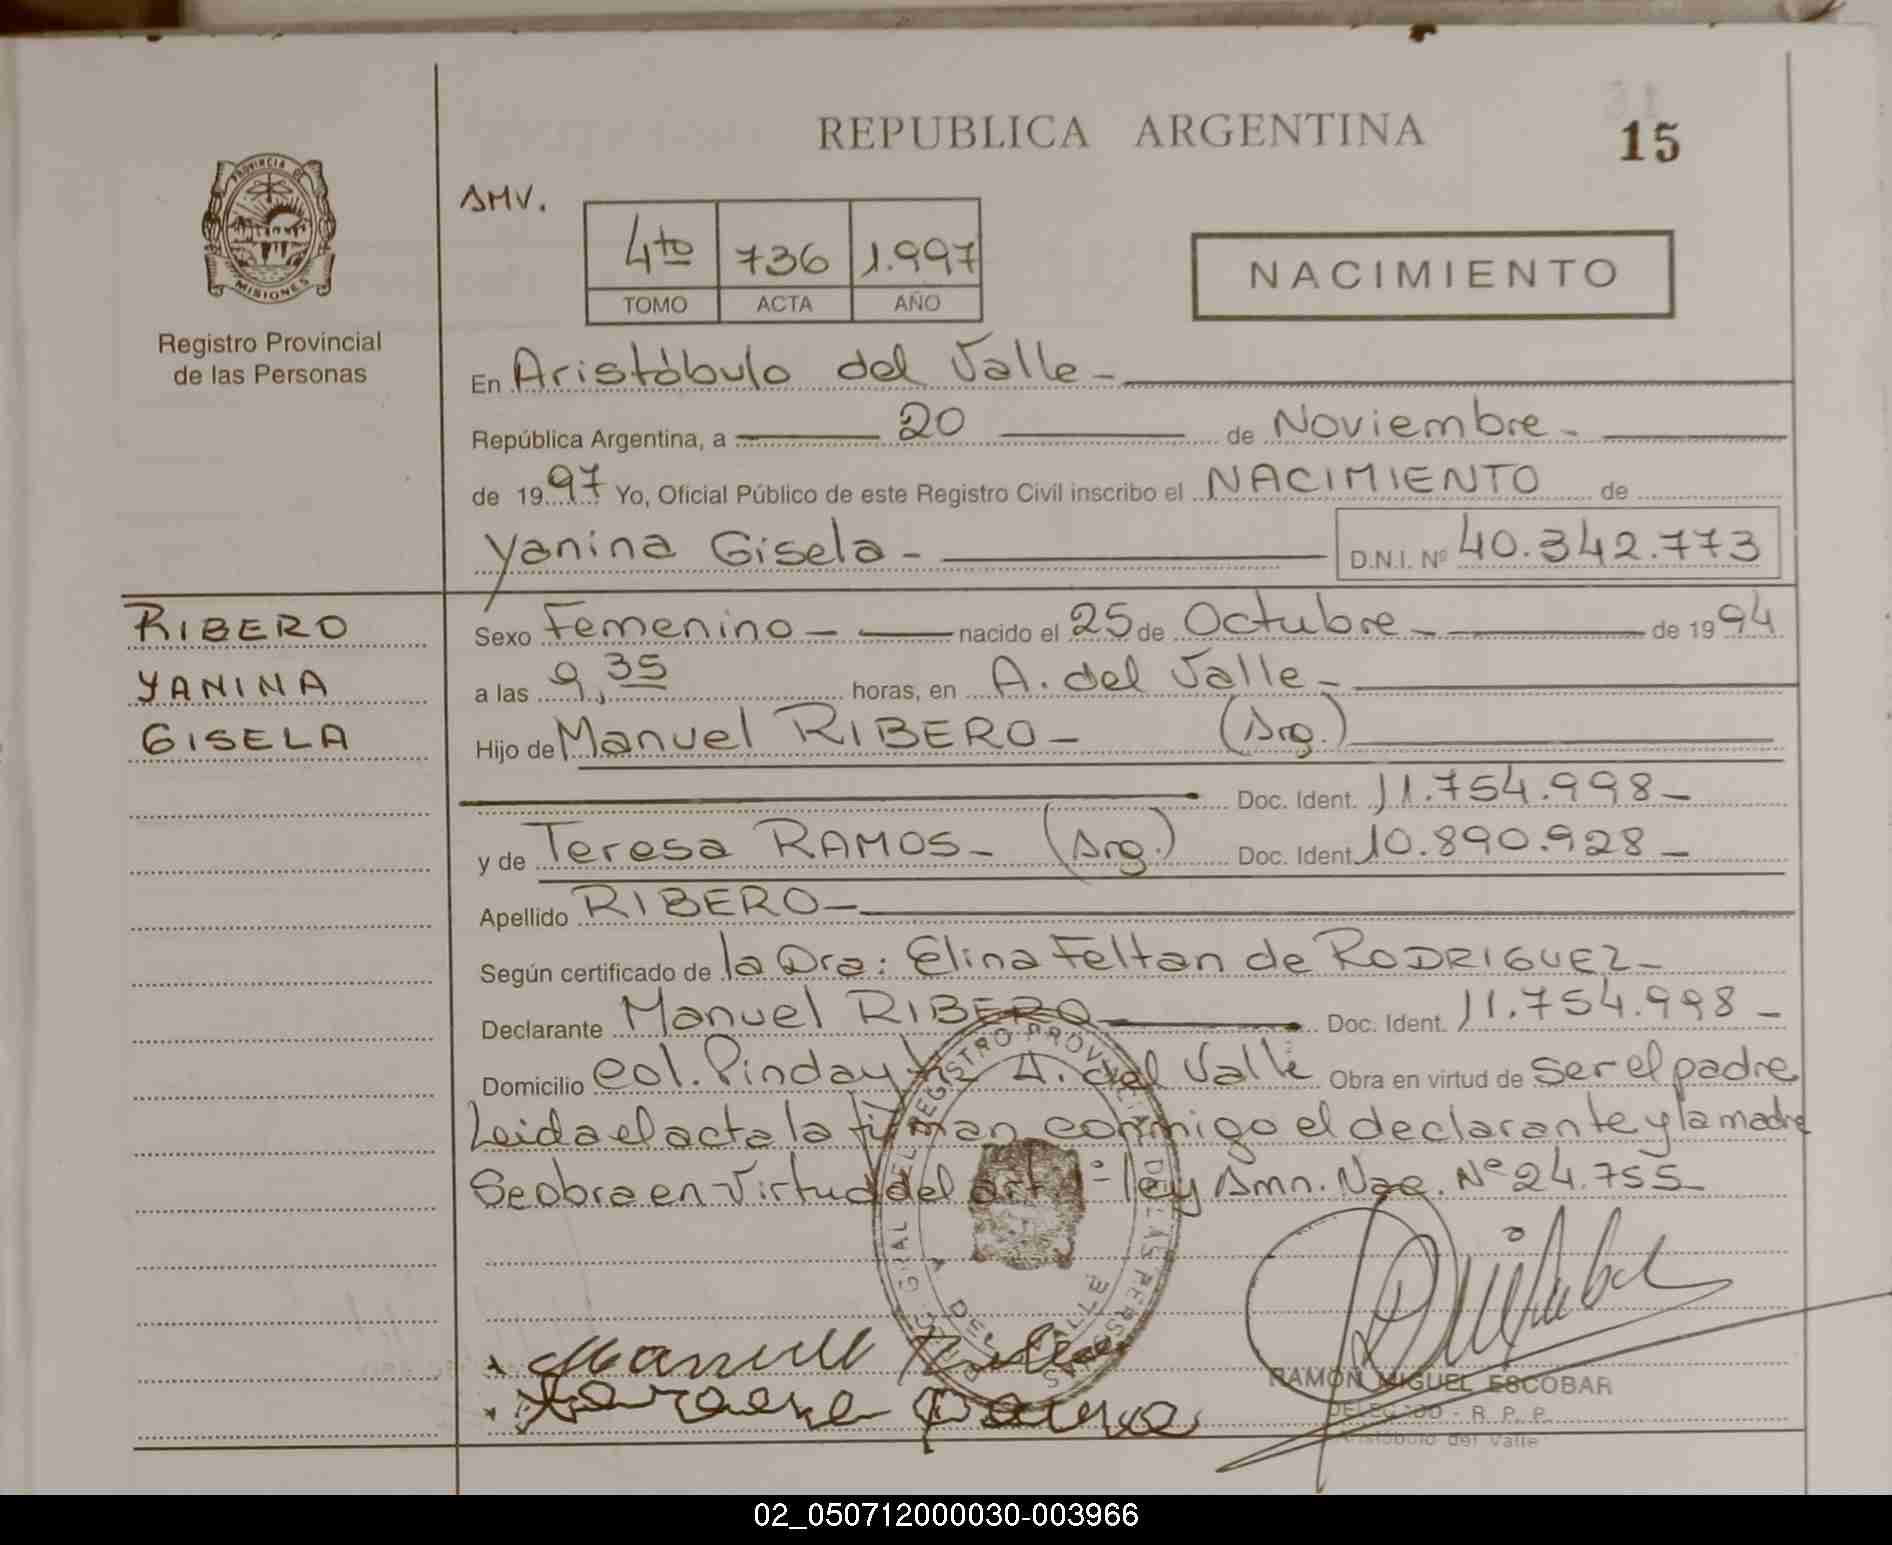 REPUBLICA ARGENTINA
15
PROVINCIA DE
MISIONES
Registro Provincial
de las Personas
AMV.
4to 736 1.997
TOMO ACTA AÑO
NACIMIENTO
En Aristóbulo del Valle -
República Argentina, a 20 de Noviembre -
de 1997 Yo, Oficial Público de este Registro Civil inscribo el NACIMIENTO de
Yanina Gisela - D.N.I. Nº 40.342.773
RIBERO
YANINA
GISELA
Sexo Femenino - nacido el 25 de Octubre - de 1994
a las 9,35 horas, en A. del Valle -
Hijo de Manuel RIBERO - (Arg.)
Doc. Ident. 11.754.998 -
y de Teresa RAMOS - (Arg.) Doc. Ident 10.890.928 -
Apellido RIBERO -
Según certificado de la Dra: Elina Feltan de RODRIGUEZ -
Declarante Manuel RIBERO Doc. Ident. 11.754.998 -
Domicilio col. Pindayti A. del Valle Obra en virtud de ser el padre
Leida el acta la firman conmigo el declarante y la madre
Se obra en virtud del art 1º ley Amn. Nac. Nº 24.755 -
REGISTRO PROVINCIAL DE LAS PERSONAS
Manuell
RAMON MIGUEL ESCOBAR
DELEGADO - R. P. P.
Aristóbulo del Valle
02_050712000030-003966